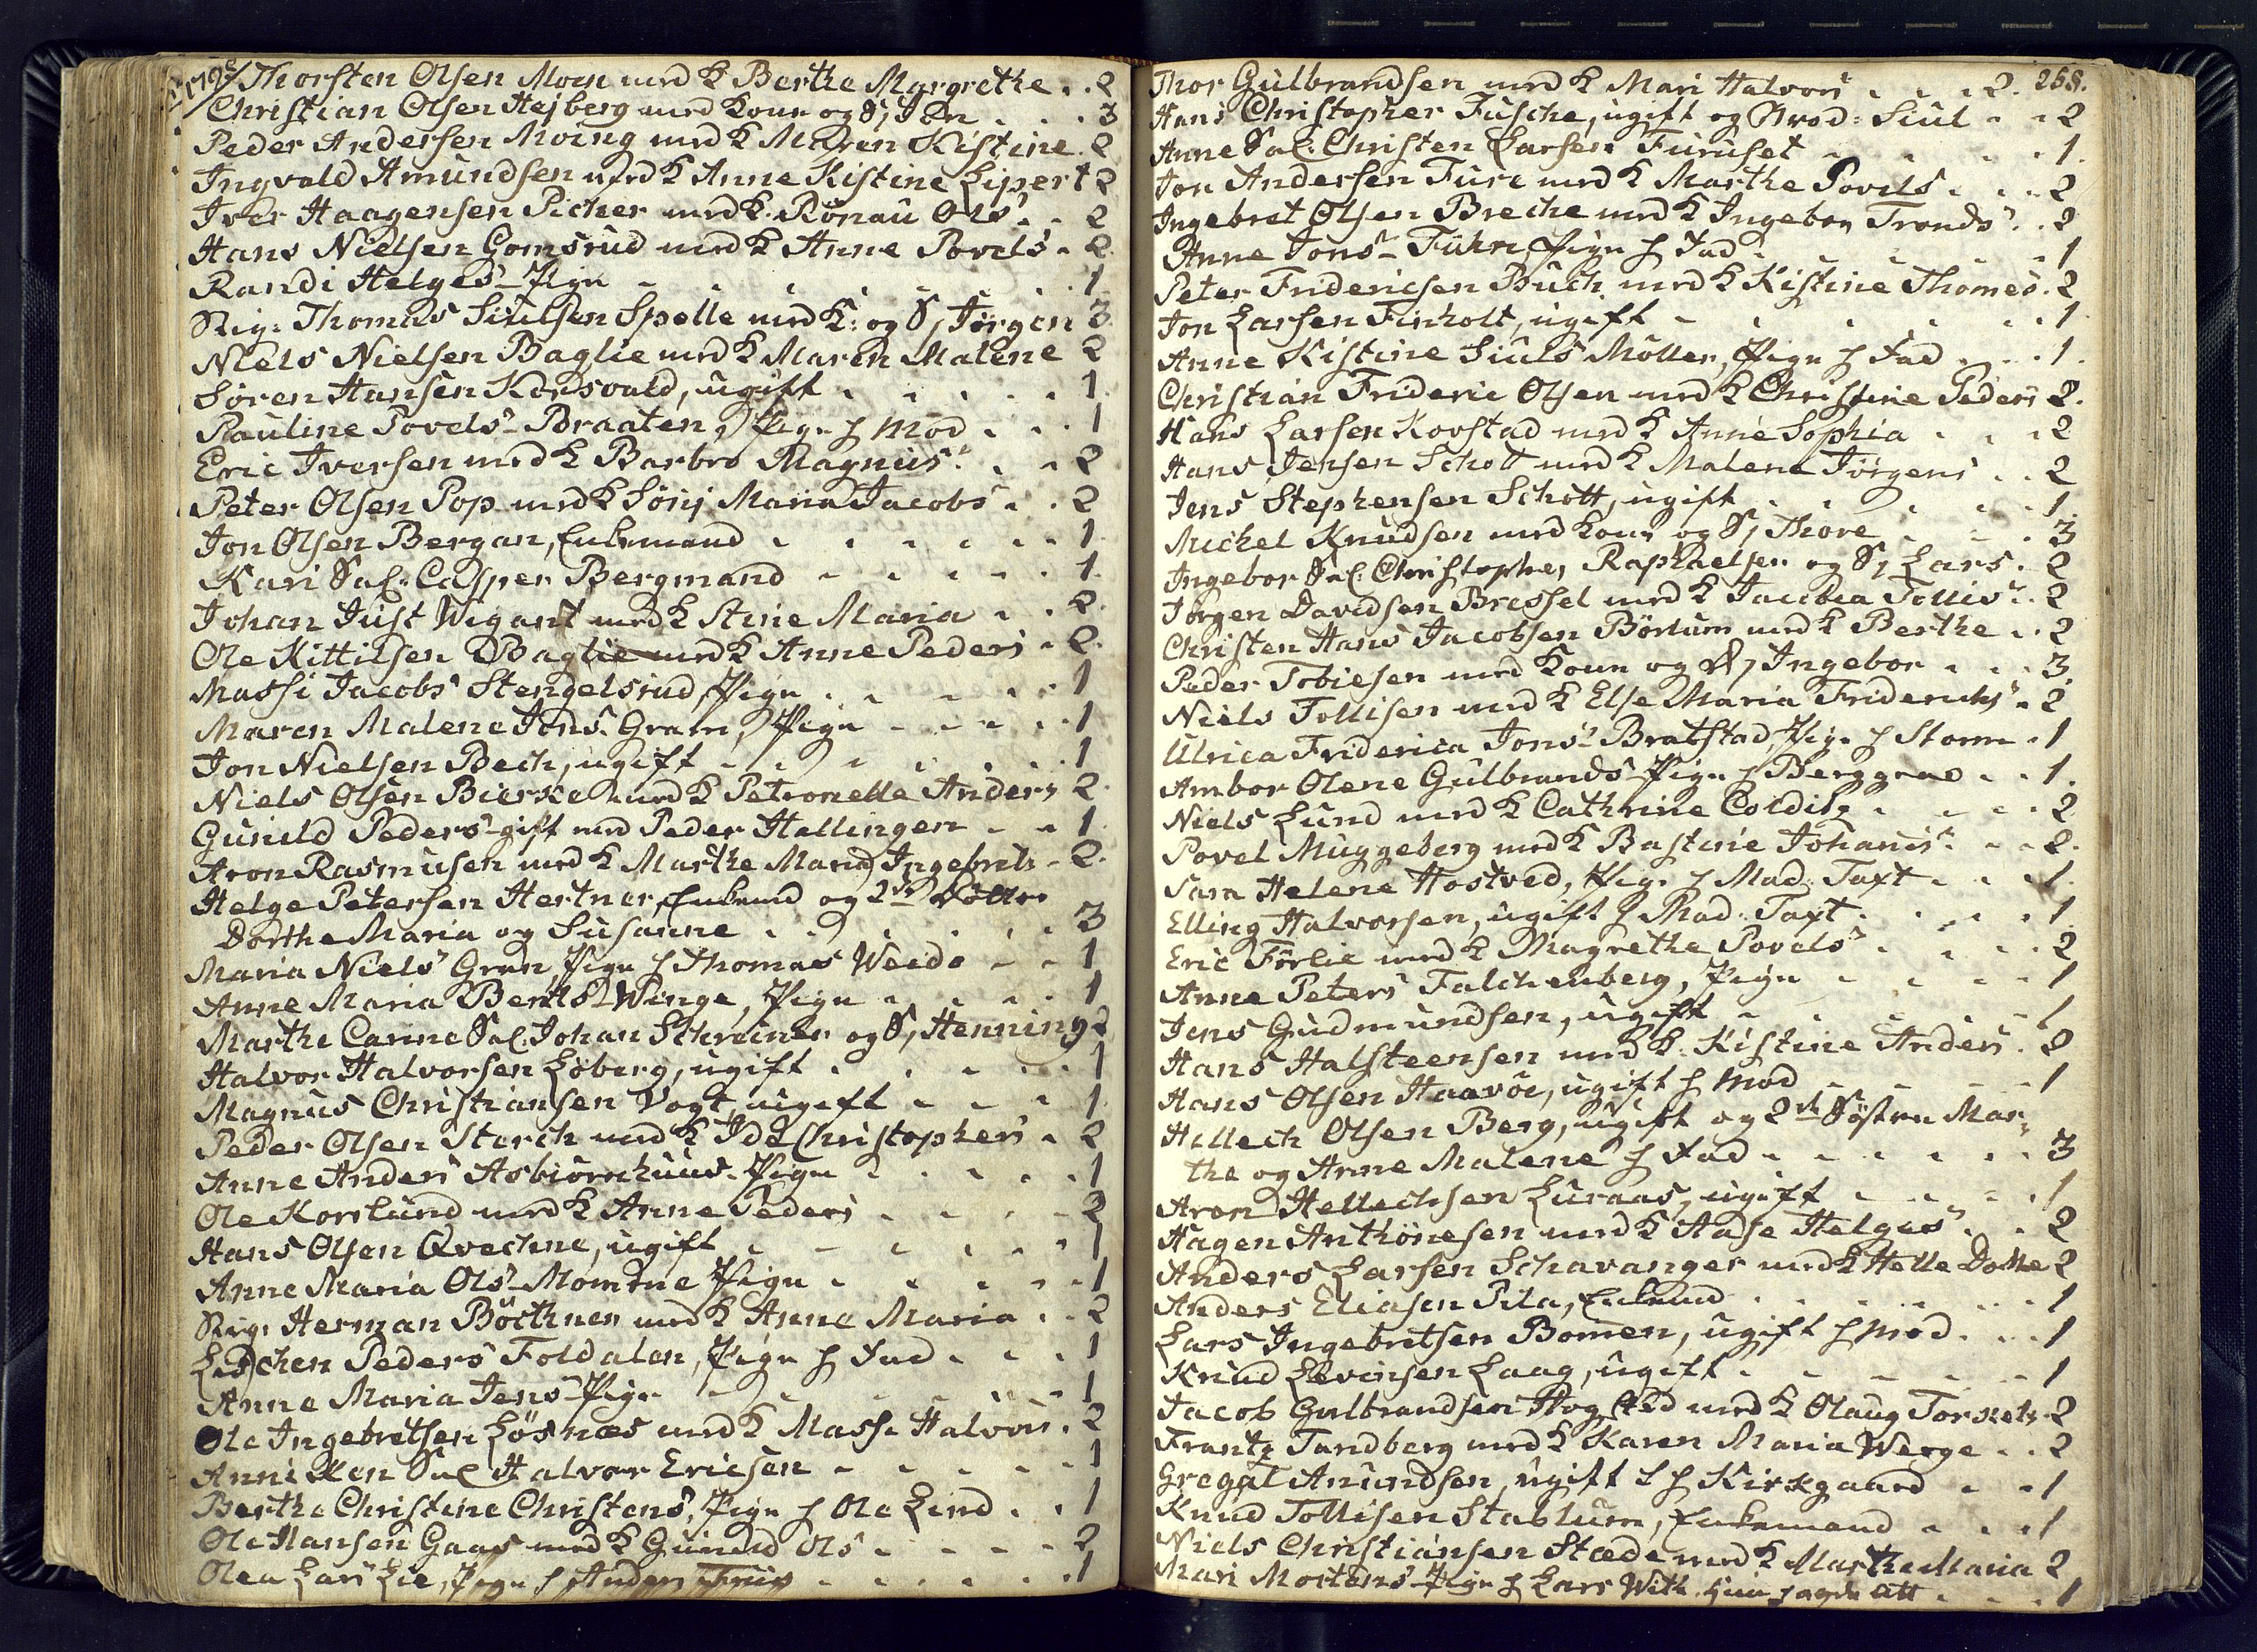 Thorsten Olsen Moen med K Berthe Margrethe . . 2
Christian Olsen Hejberg med Kone og S, Jon . . . 3
Peder Andersen Moing med K Maren Kistine . 2
Ingvald Amundsen med K Anne Kistine Lipert 2
Iver Haagensen Picher med K. Rönau Ols' . . 2
Hans Nielsen Gomsrud med K Anne Povels' . 2
Randi Helges' Pige . . . . . . 1
Sig: Thomas Siulsen Spelle med K: og S, Jörgen 3
Niels Nielsen Baglie med K Maren Malene 2
Sören Hansen Konsvald, ugift . . . . 1
Pauline Povels' Braaten, Pige h Mod . . . 1
Eric Iversen med K Barbro Magnus' . . 2
Peter Olsen Pop med K Sörij Maria Jacobs' . . 2
Jon Olsen Bergan, Enkemand . . . . . 1
Kari Sal. Casper Bergmand . . . . 1
Johan Just Wigant med K Stine Maria . . 2
Ole Kittilsen Baglie med K Anne Peders . 2
Massi Jacobs' Stengelsrud, Pige . . . . 1
Maren Malene Jens' Gram, Pige . . . . 1
Jon Nielsen Bech, ugift . . . . . . 1
Niels Olsen Bierke med K Petronelle Anders 2
Gunild Peders' gift med Peder Hellingen . . 1
Aron Rasmusen med K Marthe Maria Ingebrits . 2
Helge Petersen Hertner, Enkemd og 2de Döttre
Dorthe Maria og Susanne . . . . . 3
Maria Niels' Gran, Pige h Thomas Weide . . 1
Anne Maria Bents' Winge, Pige . . . . 1
Marthe Carine Sal. Johan Schreiner og S, Henning 2
Halvor Halvorsen Löberg, ugift . . . . 1
Magnus Christiansen Vogt, ugift . . . 1
Peder Olsen Storch med K Ide Christophers . 2
Anne Anders' Asbiörnhuus Pige . . . . 1
Ole Korslund med K Anne Peders . . . . 2
Hans Olsen Qvechne, ugift . . . . . 1
Anne Maria Ols' Momene Pige . . . . 1
Sig: Herman Böthner med K Anne Maria . . 2
Lischen Peders' Foldalen, Pige h Fad . . . 1
Anne Maria Jens' Pige . . . . . . 1
Ole Ingebretsen Lösnæs med K Masse Halvors . 2
Anniken Sal Halvor Ericsen . . . . . 1
Berthe Christine Christens', Pige h Ole Lind . . 1
Ole Hansen Gaas med K Gunild Ols' . . . . 2
Olea Lars' Lie, Pige h Anders . . . . . 1
268.
Thor Gulbrandsen med K Mari Halvors' . . . 2.
Hans Christopher Fusche, ugift og Brod: Siul . . 2
Anne Sal: Christen Larsen Furuset . . . . 1.
Jon Andersen Fure med K Marthe Povels . . . 2
Ingebret Olsen Breche med K Ingebor Tronds' . . 2
Anne Jons' Fuhre, Pige h Fad . . . . . 1
Peter Fridericsen Buch med K Kistine Thomes . 2
Jon Larsen Finholt, ugift . . . . . . 1.
Anne Kistine Siuls' Möller, Pige h Fad . . . 1.
Christian Frideric Olsen med K Christine Peders 2.
Hans Larsen Kovstad med K Anne Sophia . . . 2
Hans Jensen Schott med K Malene Jörgens . . 2
Jens Stephensen Schott, ugift . . . . . 1.
Michel Knudsen med Kone og S, Thore . . . 3
Ingebor Sal: Christopher Raphaelsen og S, Lars . 2
Jörgen Davidsen Bressel med K Jacobea Tollis' . . 2
Christen Hans Jacobsen Börlum med K Berthe . . 2
Peder Tobiesen med Kone og D, Ingebor . . . 3.
Niels Tollisen med K Else Maria Friderichs' . 2
Ulrica Friderica Jons' Bratstad, Pige h Storm . 1
Ambor Olene Gulbrands' Pige h Berggrav . . 1.
Niels Lund med K Cathrine Colditz . . . . 2
Povel Muggeberg med K Bastine Johanis' . . 2.
Sara Helene Hostved, Pige h Mad. Taxt . . . 1.
Elling Halvorsen, ugift h Mad. Taxt . . . . 1
Eric Förlie med K Magrethe Povels' . . . . 2
Anne Peters' Falchenberg, Pige . . . . 1
Jens Gudmundsen, ugift . . . . . . 1
Hans Halsteensen med K. Kistine Anders . 2
Hans Olsen Haavöe, ugift h Mod . . . . 1
Hellech Olsen Berg, ugift og 2de Söstre Mar,
the og Anne Malene h Fad . . . . . . 3
Aron Hellechsen Luraas, ugift . . . . 1
Hagen Anthönesen med K Aase Helges' . . 2
Anders Larsen Schavanger med K Helle Dothe 2
Anders Eliasen Pila, Enkemd . . . . . . 1
Lars Ingebretsen Bomen, ugift h Mod . . . 1
Knud Levinsen Laag, ugift . . . . . . 1
Jacob Gulbrandsen med K Olaug Torkels . 2
Frantz Tandberg med K Karen Maria Werge . . 2
Gregat Anundsen, ugift h Kirkgaard . . 1
Knud Tollisen Stablum, Enkemand . . . 1
Niels Christiansen Stæde med K Marthe Maria 2
Mari Mortens' Pige h Lars With . . . 1